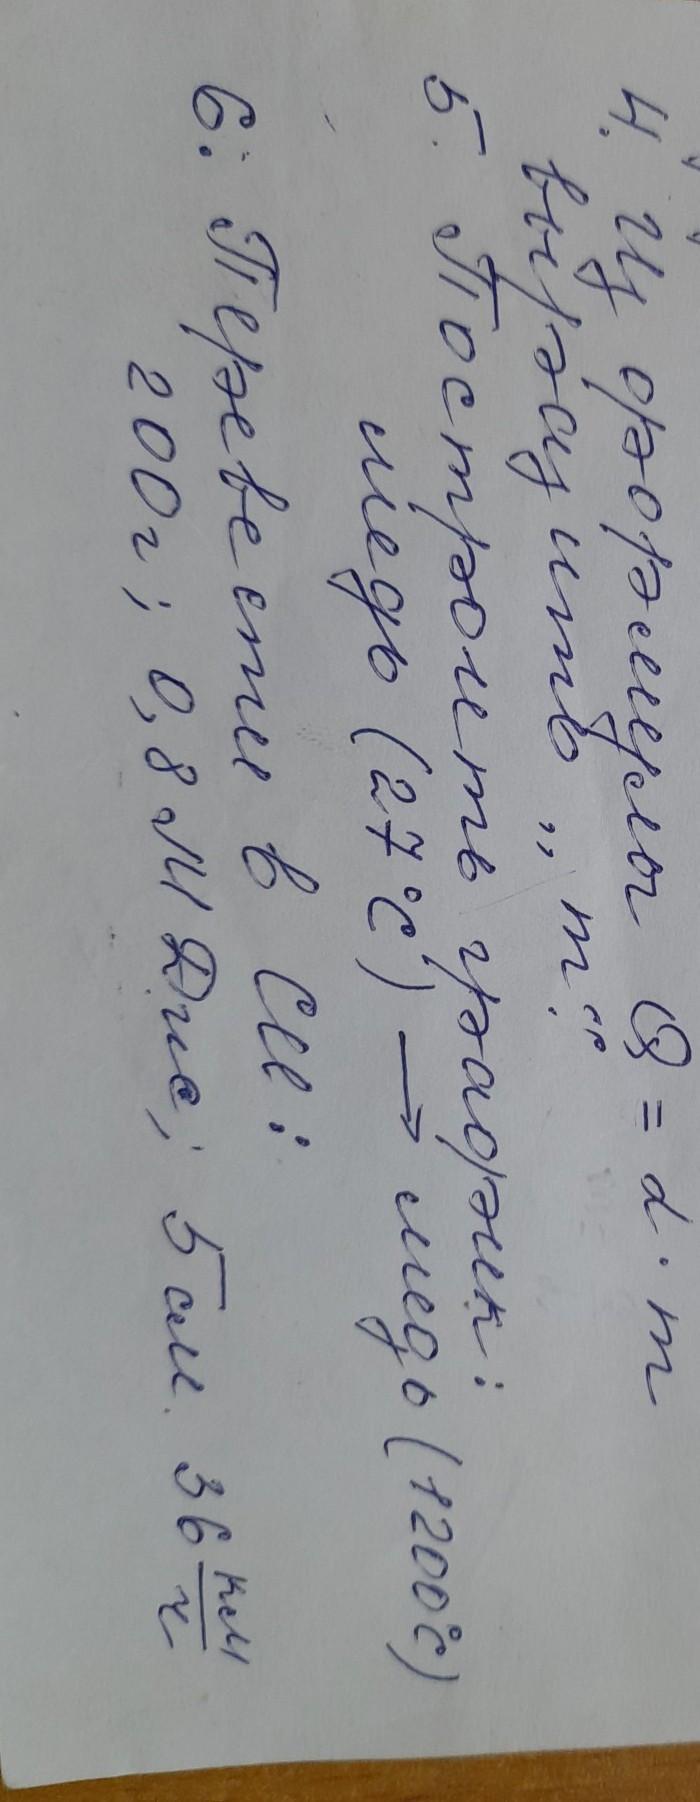 4. Из формулы Q = λ · m
выразить „m“.
5. Построить график:
медь (27°C) → медь (1200°C)
6. Перевести в СИ:
200г; 0,8 МДж; 5 см. 36 км/ч